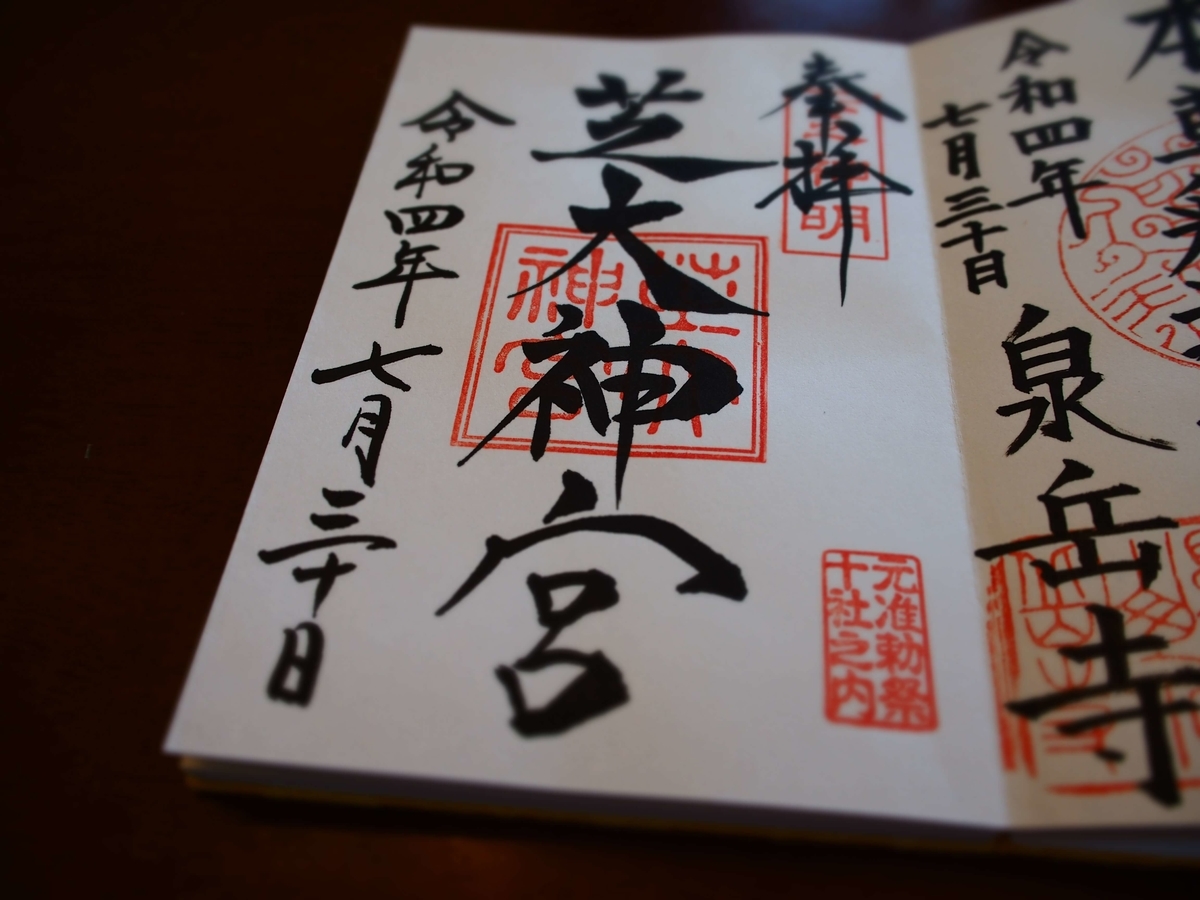 令和四年
七月三十日
泉岳寺
奉拝
元准勅祭
十社之内
芝大神宮
芝大
神宮
令和四年七月三十日